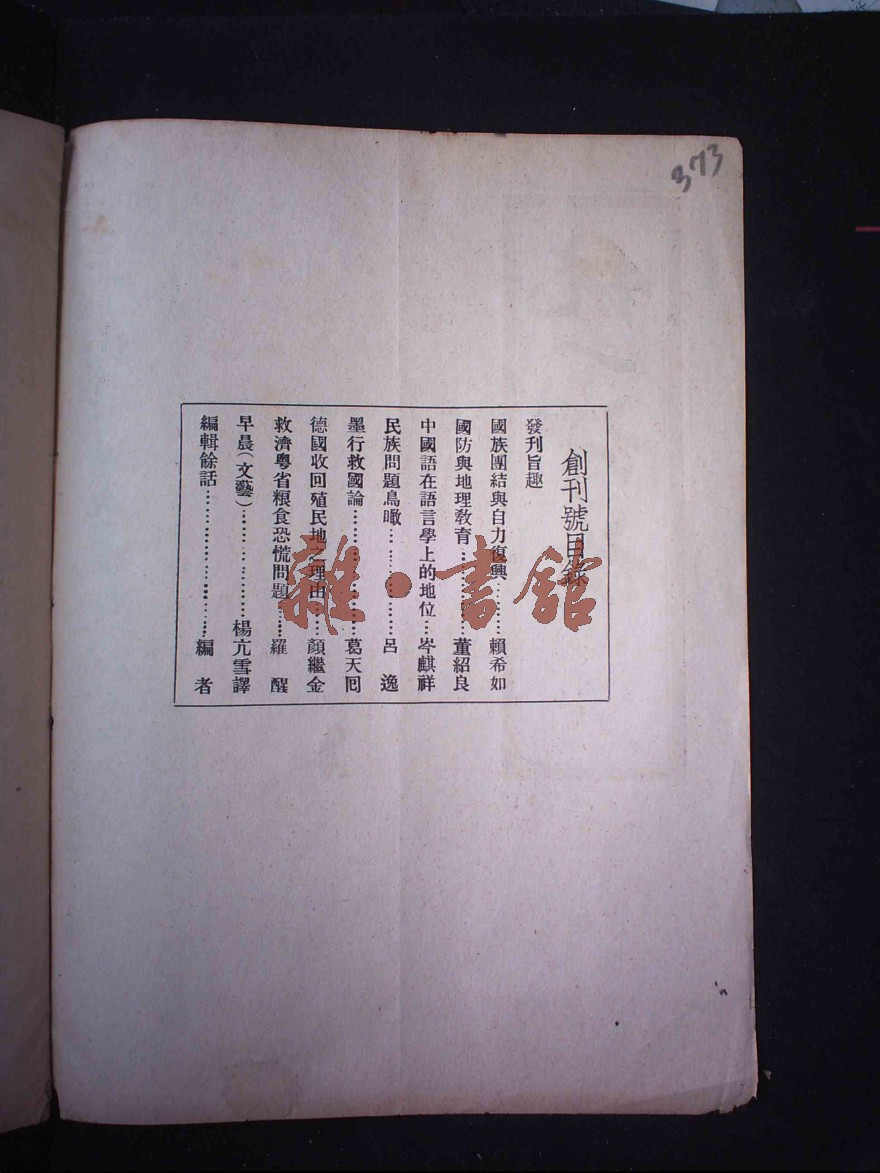 373
創刊號目錄
發刊旨趣
國族團結與自力復興…………賴希如
國防與地理敎育…………董紹良
中國語在語言學上的地位…岑麒祥
民族問題鳥瞰…………呂 逸
墨行救國論…………葛天囘
德國收回殖民地之理由……顏繼金
救濟粵省粮食恐慌問題……羅 醒
早晨(文藝)…………楊亢雪譯
編輯餘話…………編 者
雜·書館